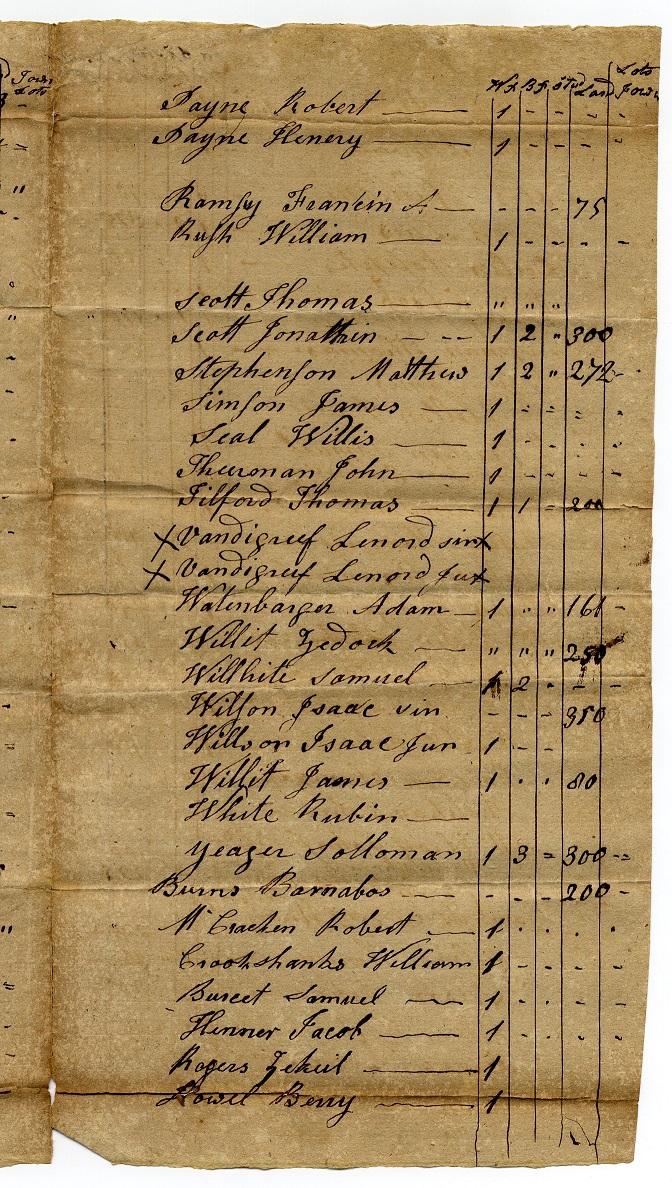 Town
Lots
Lots
W P B P Stud Land Town
Payne Robert — 1 - - - -
Payne Henery — 1 - - -
Ramsy Francin A — - - - 75
Rush William — 1 - - - -
Scott Thomas — " " "
Scott Jonathin - -- 1 2 " 300
Stephenson Matthew 1 2 " 272 -
Simson James — 1 - - - -
Seal Willis — 1 - - - -
Thurman John — 1 - - - -
Tilford Thomas — 1 1 - 200
X Vandigreef Lenord sin X
X Vandigreef Lenord jur X
Watenbarger Adam — 1 " " 161 -
Willit Zedock — " " " 250
Willhite Samuel — 1 2 - - -
Wilson Isaac sin - - - 350
Willson Isaac Jun 1 - -
Willit James — 1 - - 80
White Rubin —
Yeager Solloman 1 3 - 300 --
Burns Barnabos — - - - 200 -
Mc Cracken Robert — 1 - - - -
Crookshanks William 1 - - - -
Burcet Samuel — 1 - - - -
Henner Jacob — 1 - - - -
Rogers Zekeil — 1
Howel Berry — 1